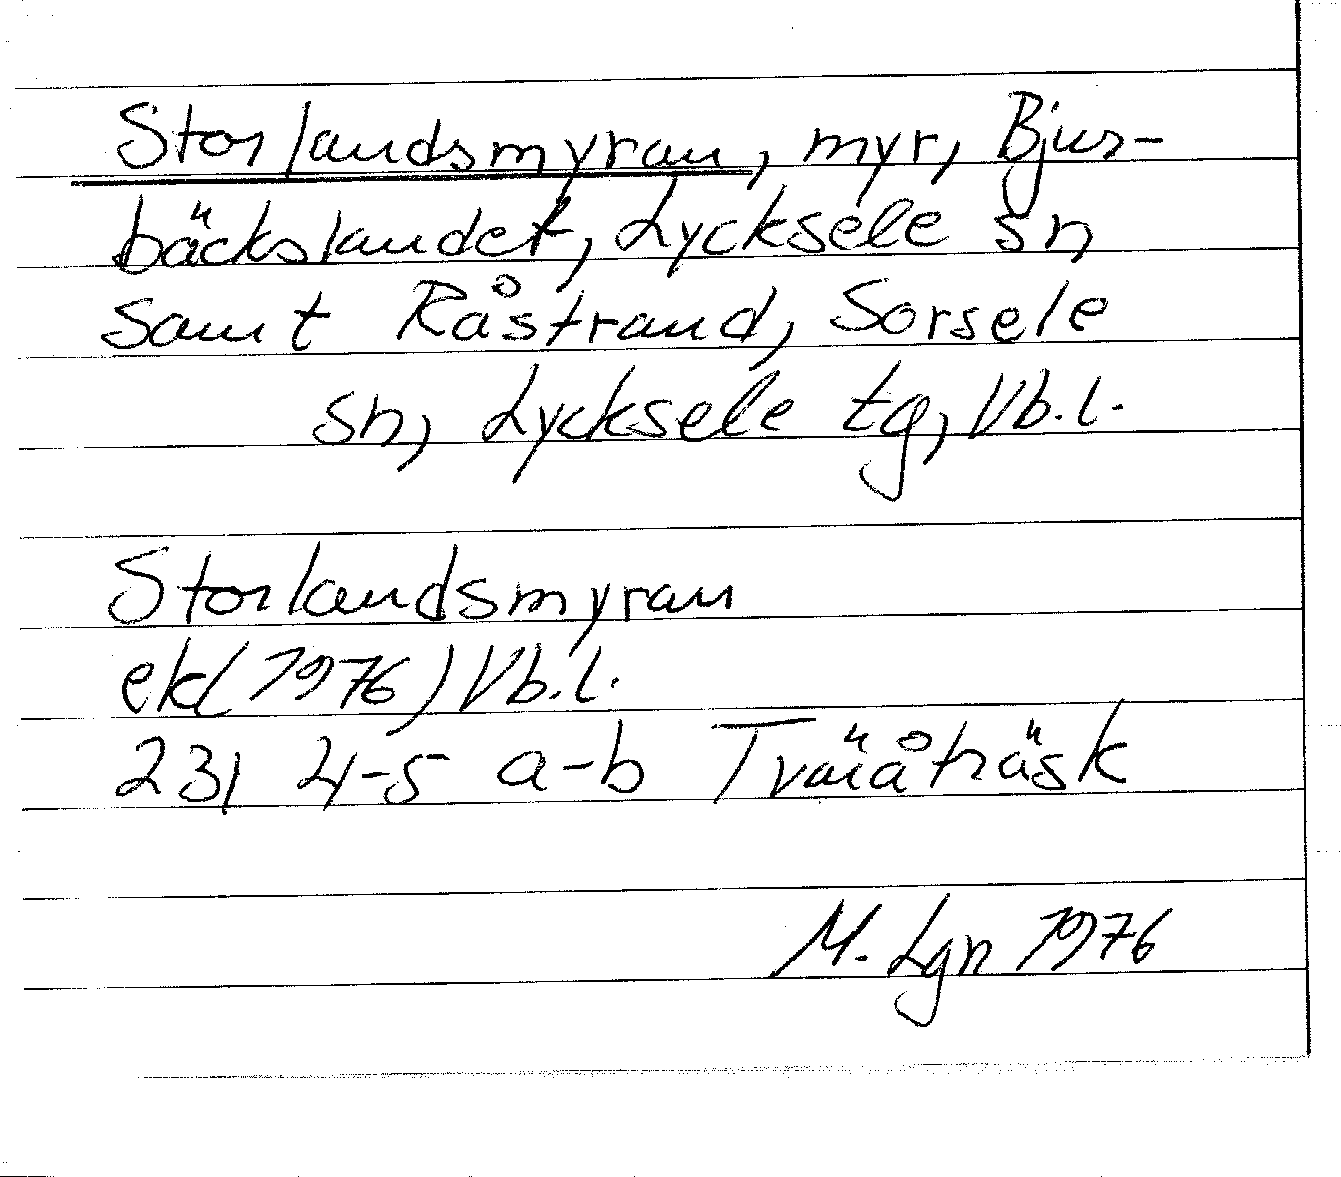 Storlandsmyran, myr, Bjur-
bäckslandet, Lycksele sn
samt Råstrand, Sorsele
sn, Lycksele tg, Vb.l.
Storlandsmyran
ek(1976) Vb.l.
23I 4-5 a-b Tväråträsk
M. Lgn 1976